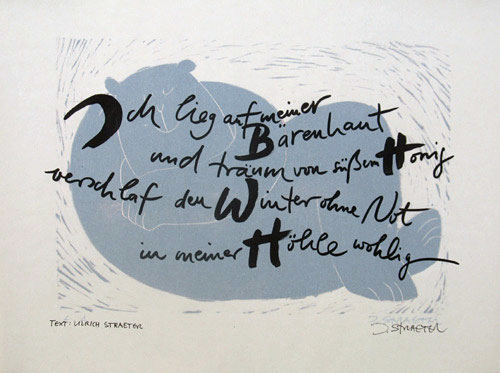 Ich lieg auf meiner
Bärenhaut
und träum von süßem Honig
verschlaf den Winter ohne Not
in meiner Höhle wohlig
TEXT: ULRICH STRAETER
STRAETER